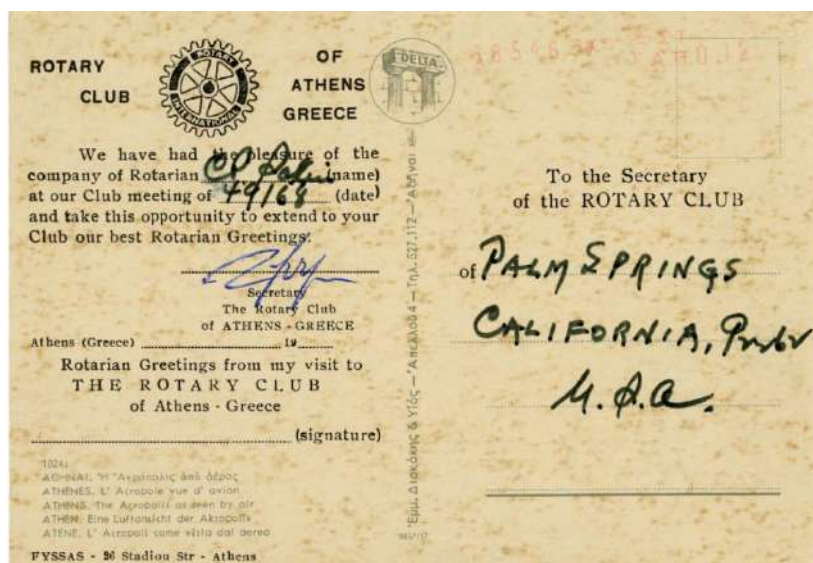 ROTARY
CLUB
ROTARY
INTERNATIONAL
OF
ATHENS
GREECE
We have had the pleasure of the
company of Rotarian (name)
at our Club meeting of (date)
and take this opportunity to extend to your
Club our best Rotarian Greetings.
Secretary
The Rotary Club
of ATHENS - GREECE
Athens (Greece) 19
Rotarian Greetings from my visit to
THE ROTARY CLUB
of Athens - Greece
(signature)
ATHENES. L' Acropole vue d' avion
ATHENS. The Acropolis as seen by air
ATHEN. Eine Luftansicht der Akropolis
ATENE. L' Acropoli come vista dal aereo
FYSSAS - 26 Stadiou Str - Athens
DELTA
To the Secretary
of the ROTARY CLUB
of PALM SPRINGS
CALIFORNIA,
U.S.A.